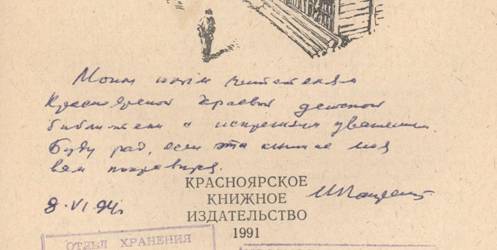 Моим юным читателям
Красноярской краевой детской
библиотеки с искренним уважением.
Буду рад, если эта книжка моя
вам понравится.
8.VI.94г.
КРАСНОЯРСКОЕ
КНИЖНОЕ
ИЗДАТЕЛЬСТВО
1991
ОТДЕЛ ХРАНЕНИЯ